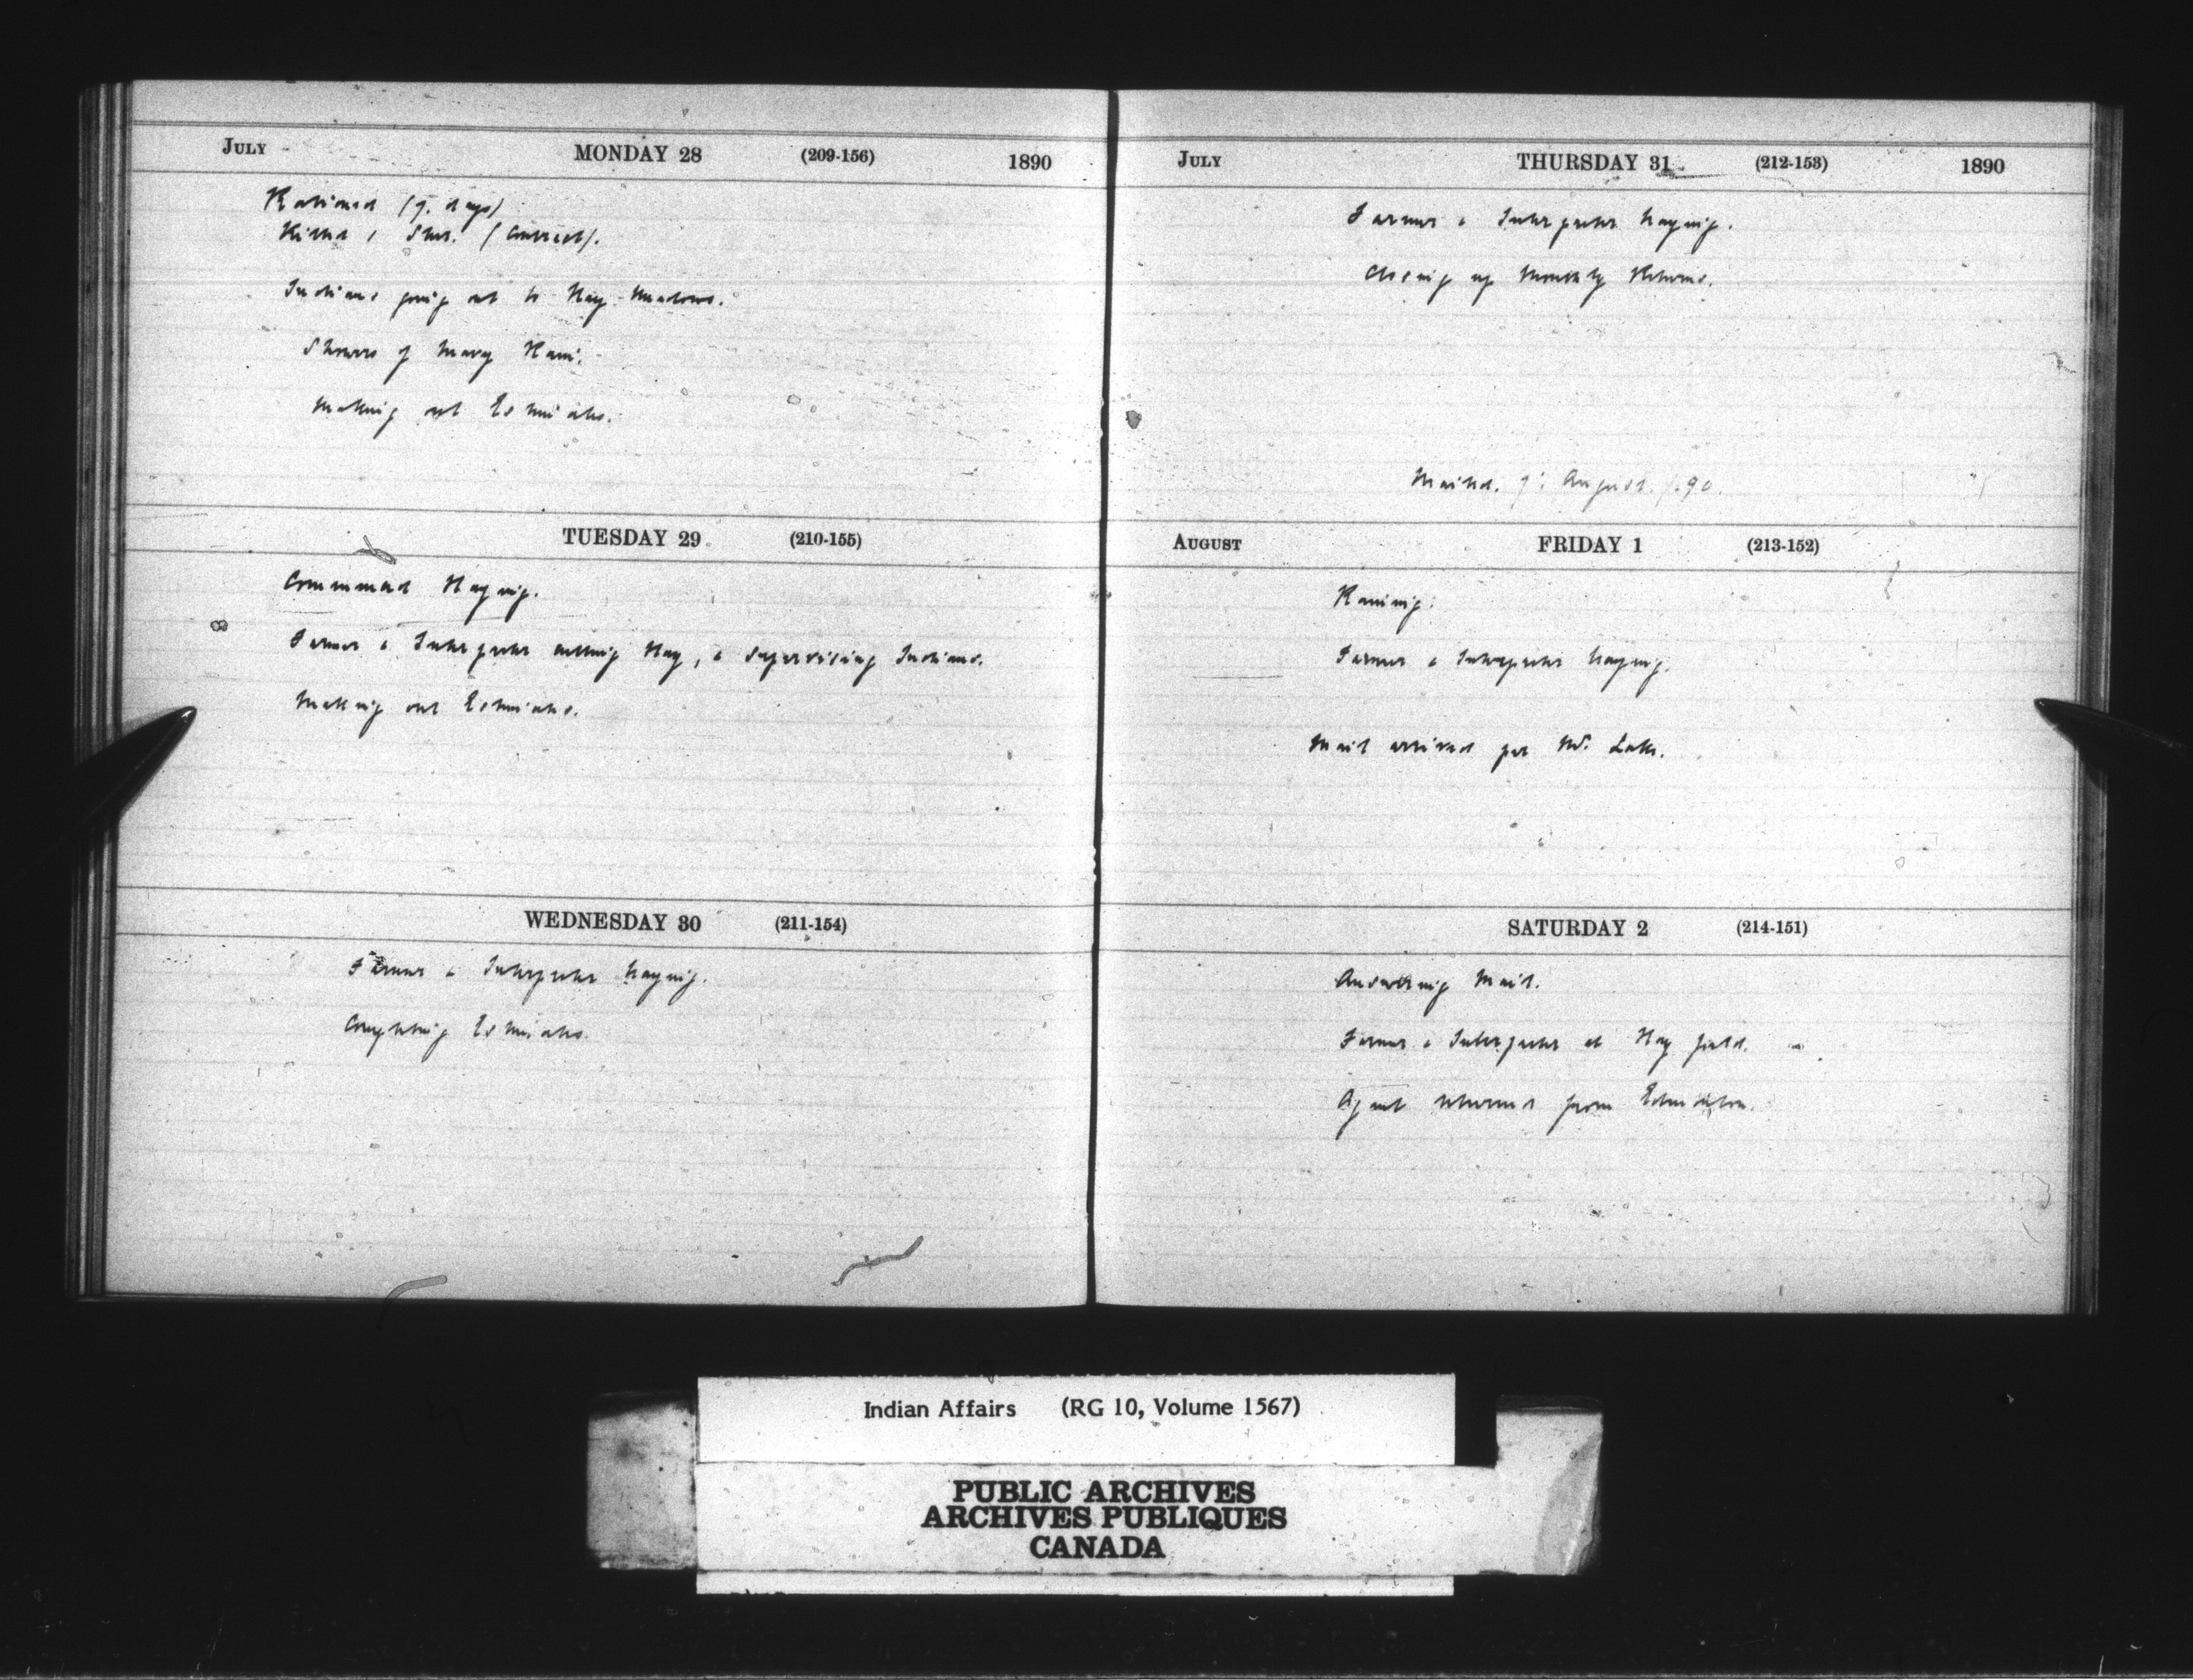 July MONDAY 28 (209-156) 1890
Rationed (7. days)
Killed 1 Steer. (Contract).
Indians going out to Hay Meadows.
Showers of heavy Rain.
Making out Estimates.
TUESDAY 29 (210-155)
Commenced Haying.
Farmer & Interpreter cutting Hay, & supervising Indians.
Making out Estimates.
WEDNESDAY 30 (211-154)
Farmer & Interpreter haying.
Completing Estimates.
July THURSDAY 31 (212-153) 1890
Farmer & Interpreter haying.
Closing up Monthly Returns.
Mailed. 7: August. /.90.
August FRIDAY 1 (213-152)
Raining.
Farmer & Interpreter haying.
Mail arrived per Mr. Lake.
SATURDAY 2 (214-151)
Answering Mail.
Farmer & Interpreter at Hay field.
Agent returned from Edmonton.
Indian Affairs (RG 10, Volume 1567)
PUBLIC ARCHIVES
ARCHIVES PUBLIQUES
CANADA